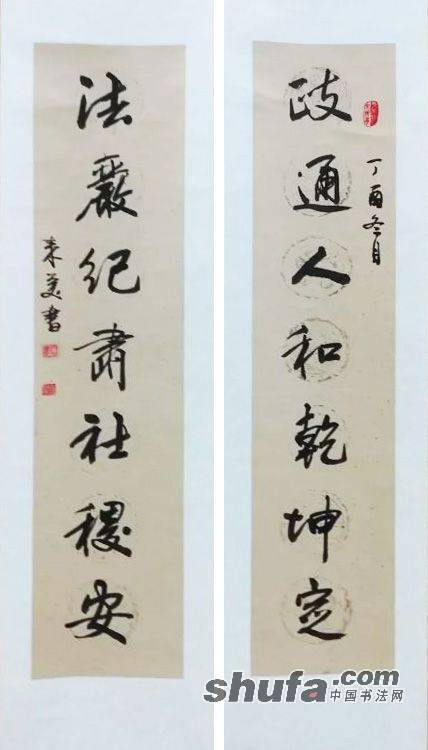 政通人和乾坤定
丁酉冬月
法嚴紀肅社稷安
来美書
shufa.com
中国书法网